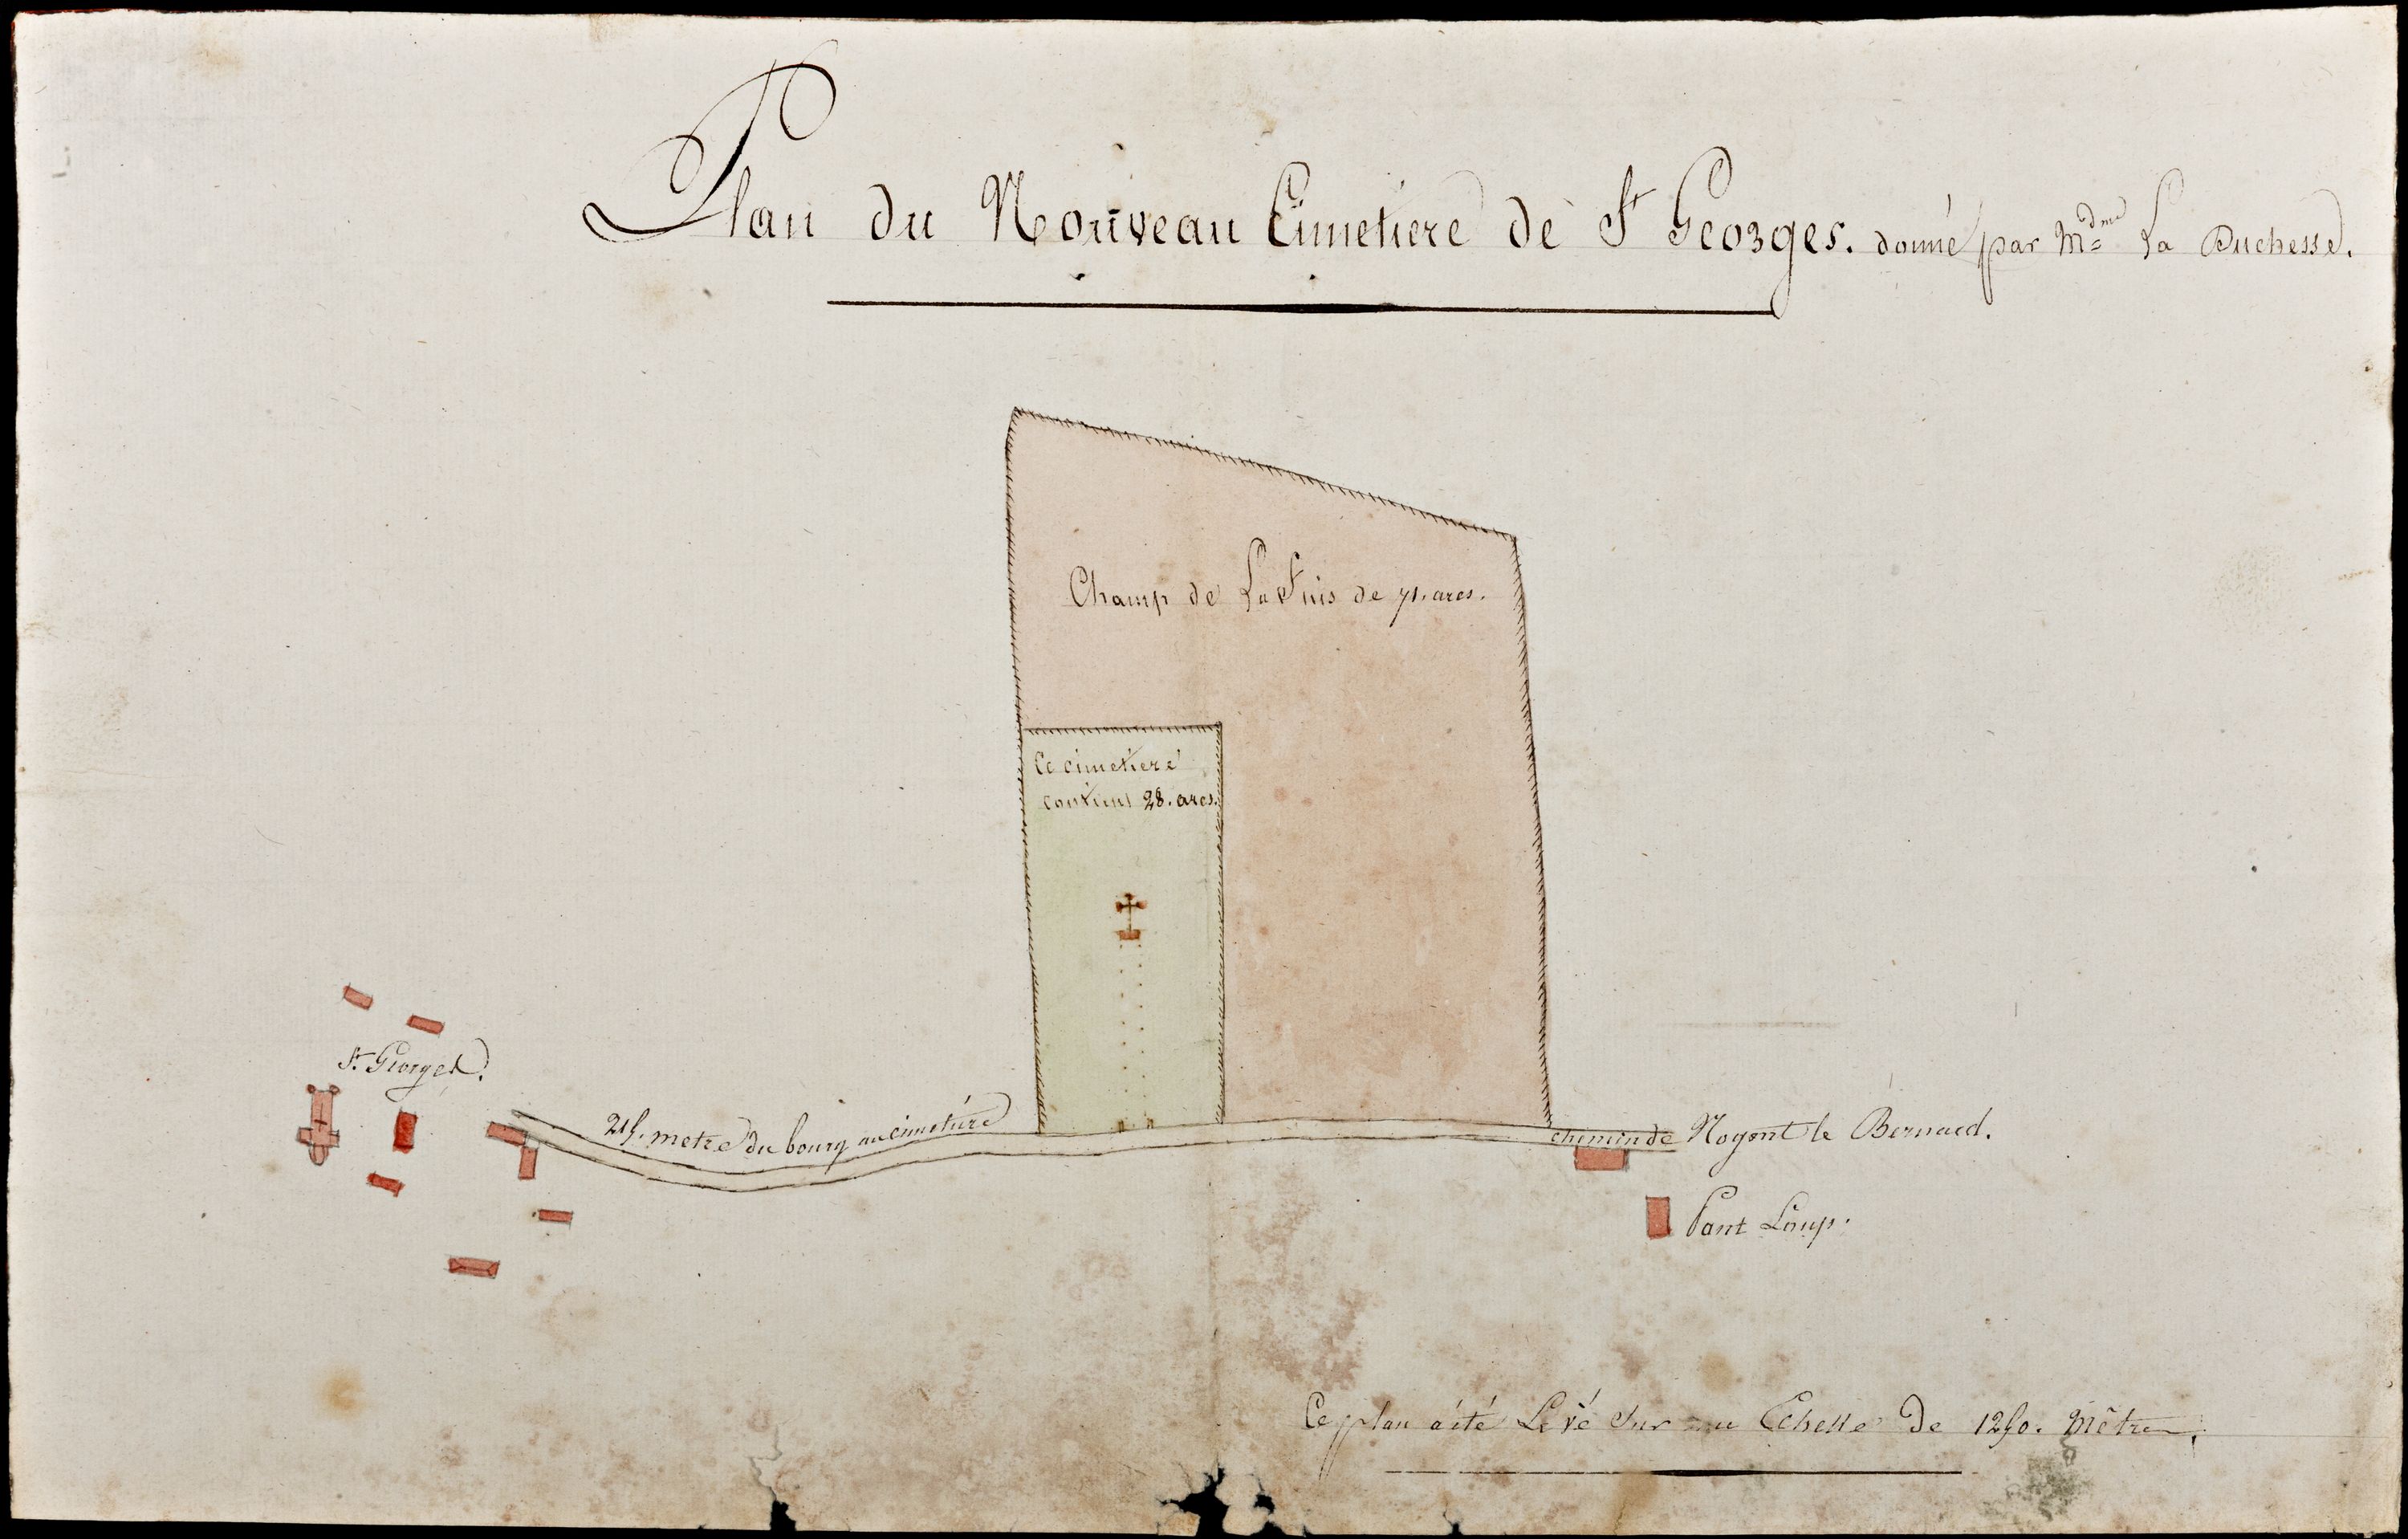 Plan du Nouveau Cimetiere de St Georges. donné par Mdme La Duchesse.
Champ de La de 71. ares.
Ce cimetiere
contient 28. ares.
St Georges.
215. metre du bourg au cimetiere
chemin de Nogent le Bernard.
Pant Loup.
Ce plan a été Levé Sur un Echelle De 1250. Mêtres.